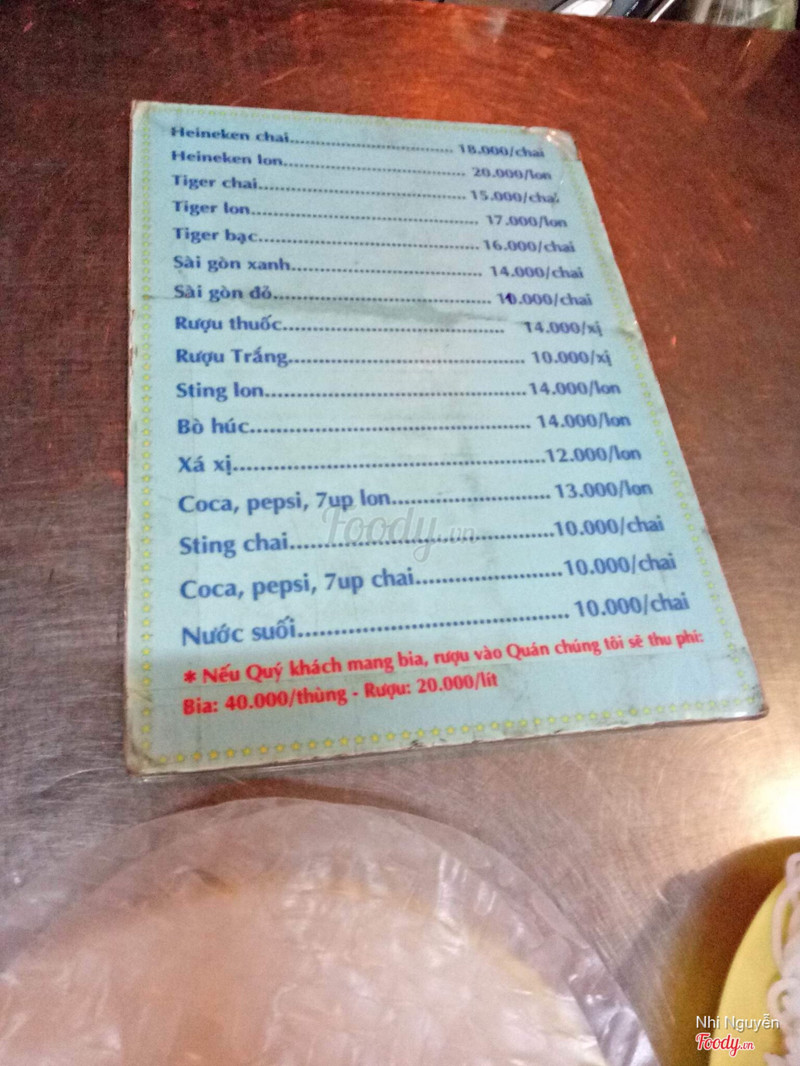 Heineken chai.......................................... 18.000/chai
Heineken lon.......................................... 20.000/lon
Tiger chai.......................................... 15.000/chai
Tiger lon.......................................... 17.000/lon
Tiger bạc.......................................... 16.000/chai
Sài gòn xanh.......................................... 14.000/chai
Sài gòn đỏ.......................................... /chai
Rượu thuốc.......................................... 14.000/xị
Rượu Trắng.......................................... 10.000/xị
Sting lon..........................................14.000/lon
Bò húc.......................................... 14.000/lon
Xá xị..........................................12.000/lon
Coca, pepsi, 7up lon.......................... 13.000/lon
Sting chai..........................................10.000/chai
Coca, pepsi, 7up chai.......................10.000/chai
Nước suối.......................................... 10.000/chai
* Nếu Quý khách mang bia, rượu vào Quán chúng tôi sẽ thu phí:
Bia: 40.000/thùng - Rượu: 20.000/lít
Foody.vn
Nhi Nguyễn
Foody.vn